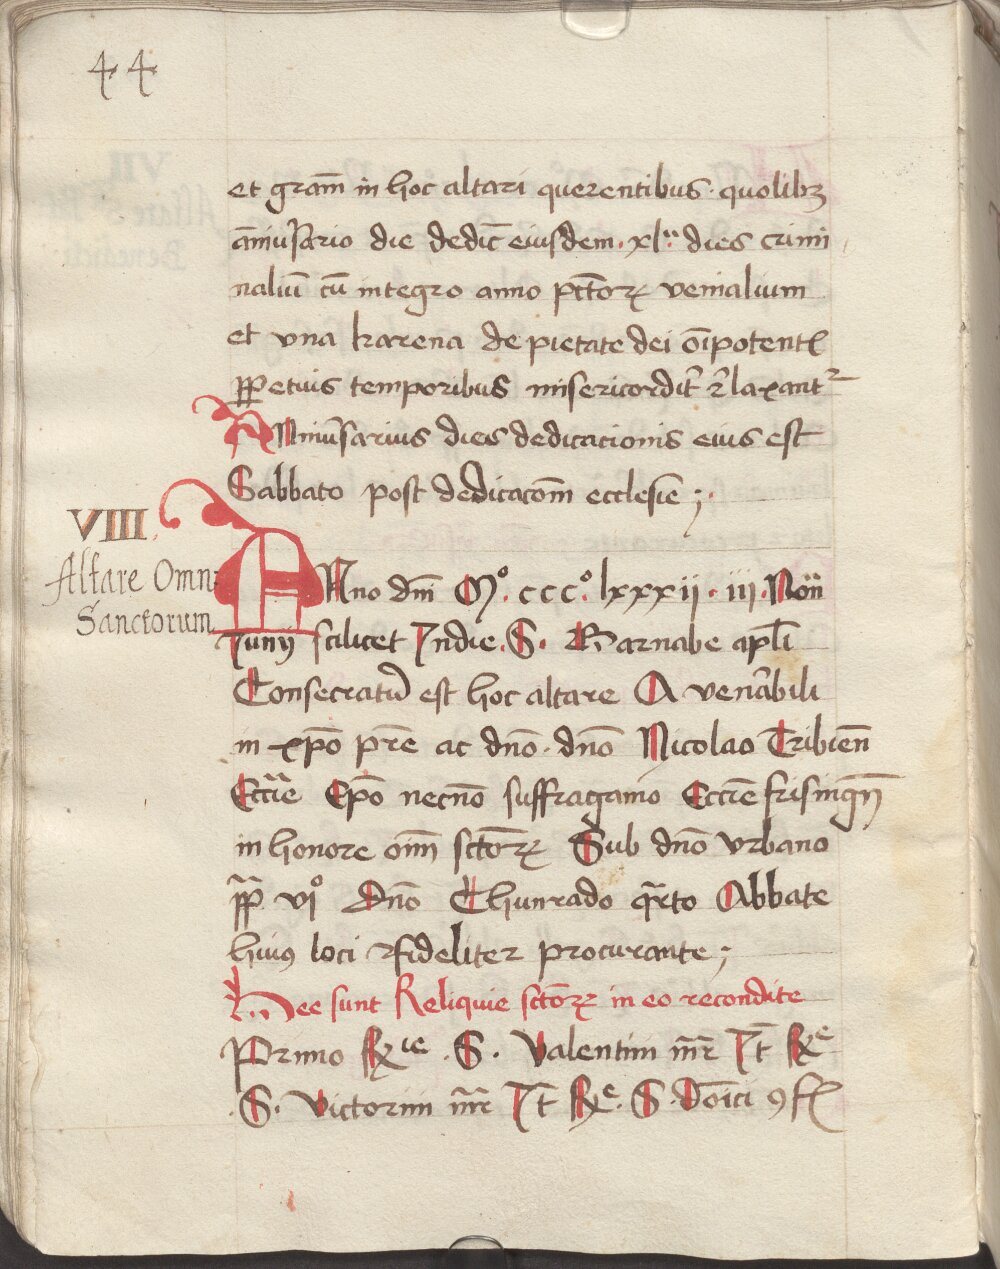 44
et gram̅ in hoc altari querentibus · quolibꝫ
a̅niu̅sario die dedic̅ eiusdem · xl · dies crimi
naliu̅ cu̅ integro anno pctor̅ꝝ venialium
et vna karena de pietate dei o̅ipotentꝭ
ꝑpetuis temporibus misericordit̅ r̅laxant᷑
Anniu̅sarius dies dedicationis eius est
Sabbato post dedicaco̅m ecclesie ;
VIII
Altare Omn:
Sanctorum
ANno dm̅ Mº · cccº · lxxxii · iii · Non̅
Junij scilicet Indie · S · Barnabe apl̅i
Consecratu̅ est hoc altare A vene̅abili
in xp̅o pr̅e ac dn̅o · dn̅o Nicolao Tribien̅
Eccl̅ie Ep̅o necno̅ suffraganio Eccl̅ie frisinge̅n
in honore om̅i sctor̅ꝝ Sub dn̅o vrbano
pp̅ viº Dn̅o Chunrado qr̅to Abbate
huiꝰ loci ꝯfideliter procurante ;
Hee sunt Reliquie sctor̅ꝝ in eo recondite
Primo Rx̅ie · S · Valentini mr̅ It̅ Rx̅e
· S · Victorini mr̅ It̅ Rx̅e · S · do̅ici ꝯfꝭ